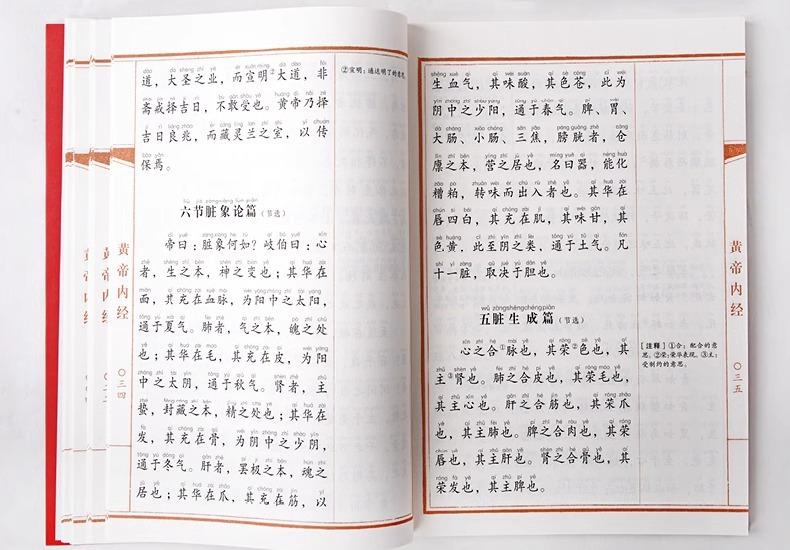 道，大圣之业，而宣明②大道，非
斋戒择吉日，不敢受也。黄帝乃择
吉日良兆，而藏灵兰之室，以传
保焉。
六节脏象论篇（节选）
帝曰：脏象何如？岐伯曰：心
者，生之本，神之变也；其华在
面，其充在血脉，为阳中之太阳，
通于夏气。肺者，气之本，魄之处
也；其华在毛，其充在皮，为阳
中之太阴，通于秋气。肾者，主
蛰，封藏之本，精之处也；其华在
发，其充在骨，为阴中之少阴，
通于冬气。肝者，罢极之本，魂之
居也；其华在爪，其充在筋，以
②宣明：通达明了的意思。
黄帝内经
〇三四
黄帝内经
黄帝内经
生血气，其味酸，其色苍，此为
阴中之少阳，通于春气。脾、胃、
大肠、小肠、三焦，膀胱者，仓
廪之本，营之居也，名曰器，能化
糟粕，转味而出入者也。其华在
唇四白，其充在肌，其味甘，其
色黄，此至阴之类，通于土气。凡
十一脏，取决于胆也。
wǔ zàng shēng chéng piān
五脏生成篇（节选）
心之合①脉也，其荣②色也，其
主③肾也。肺之合皮也，其荣毛也，
其主心也。肝之合筋也，其荣爪
也，其主肺也。脾之合肉也，其荣
唇也，其主肝也。肾之合骨也，其
荣发也，其主脾也。
［注释］①合：配合的意
思。②荣：荣华表现。③主：
受制约的意思。
黄帝内经
〇三五